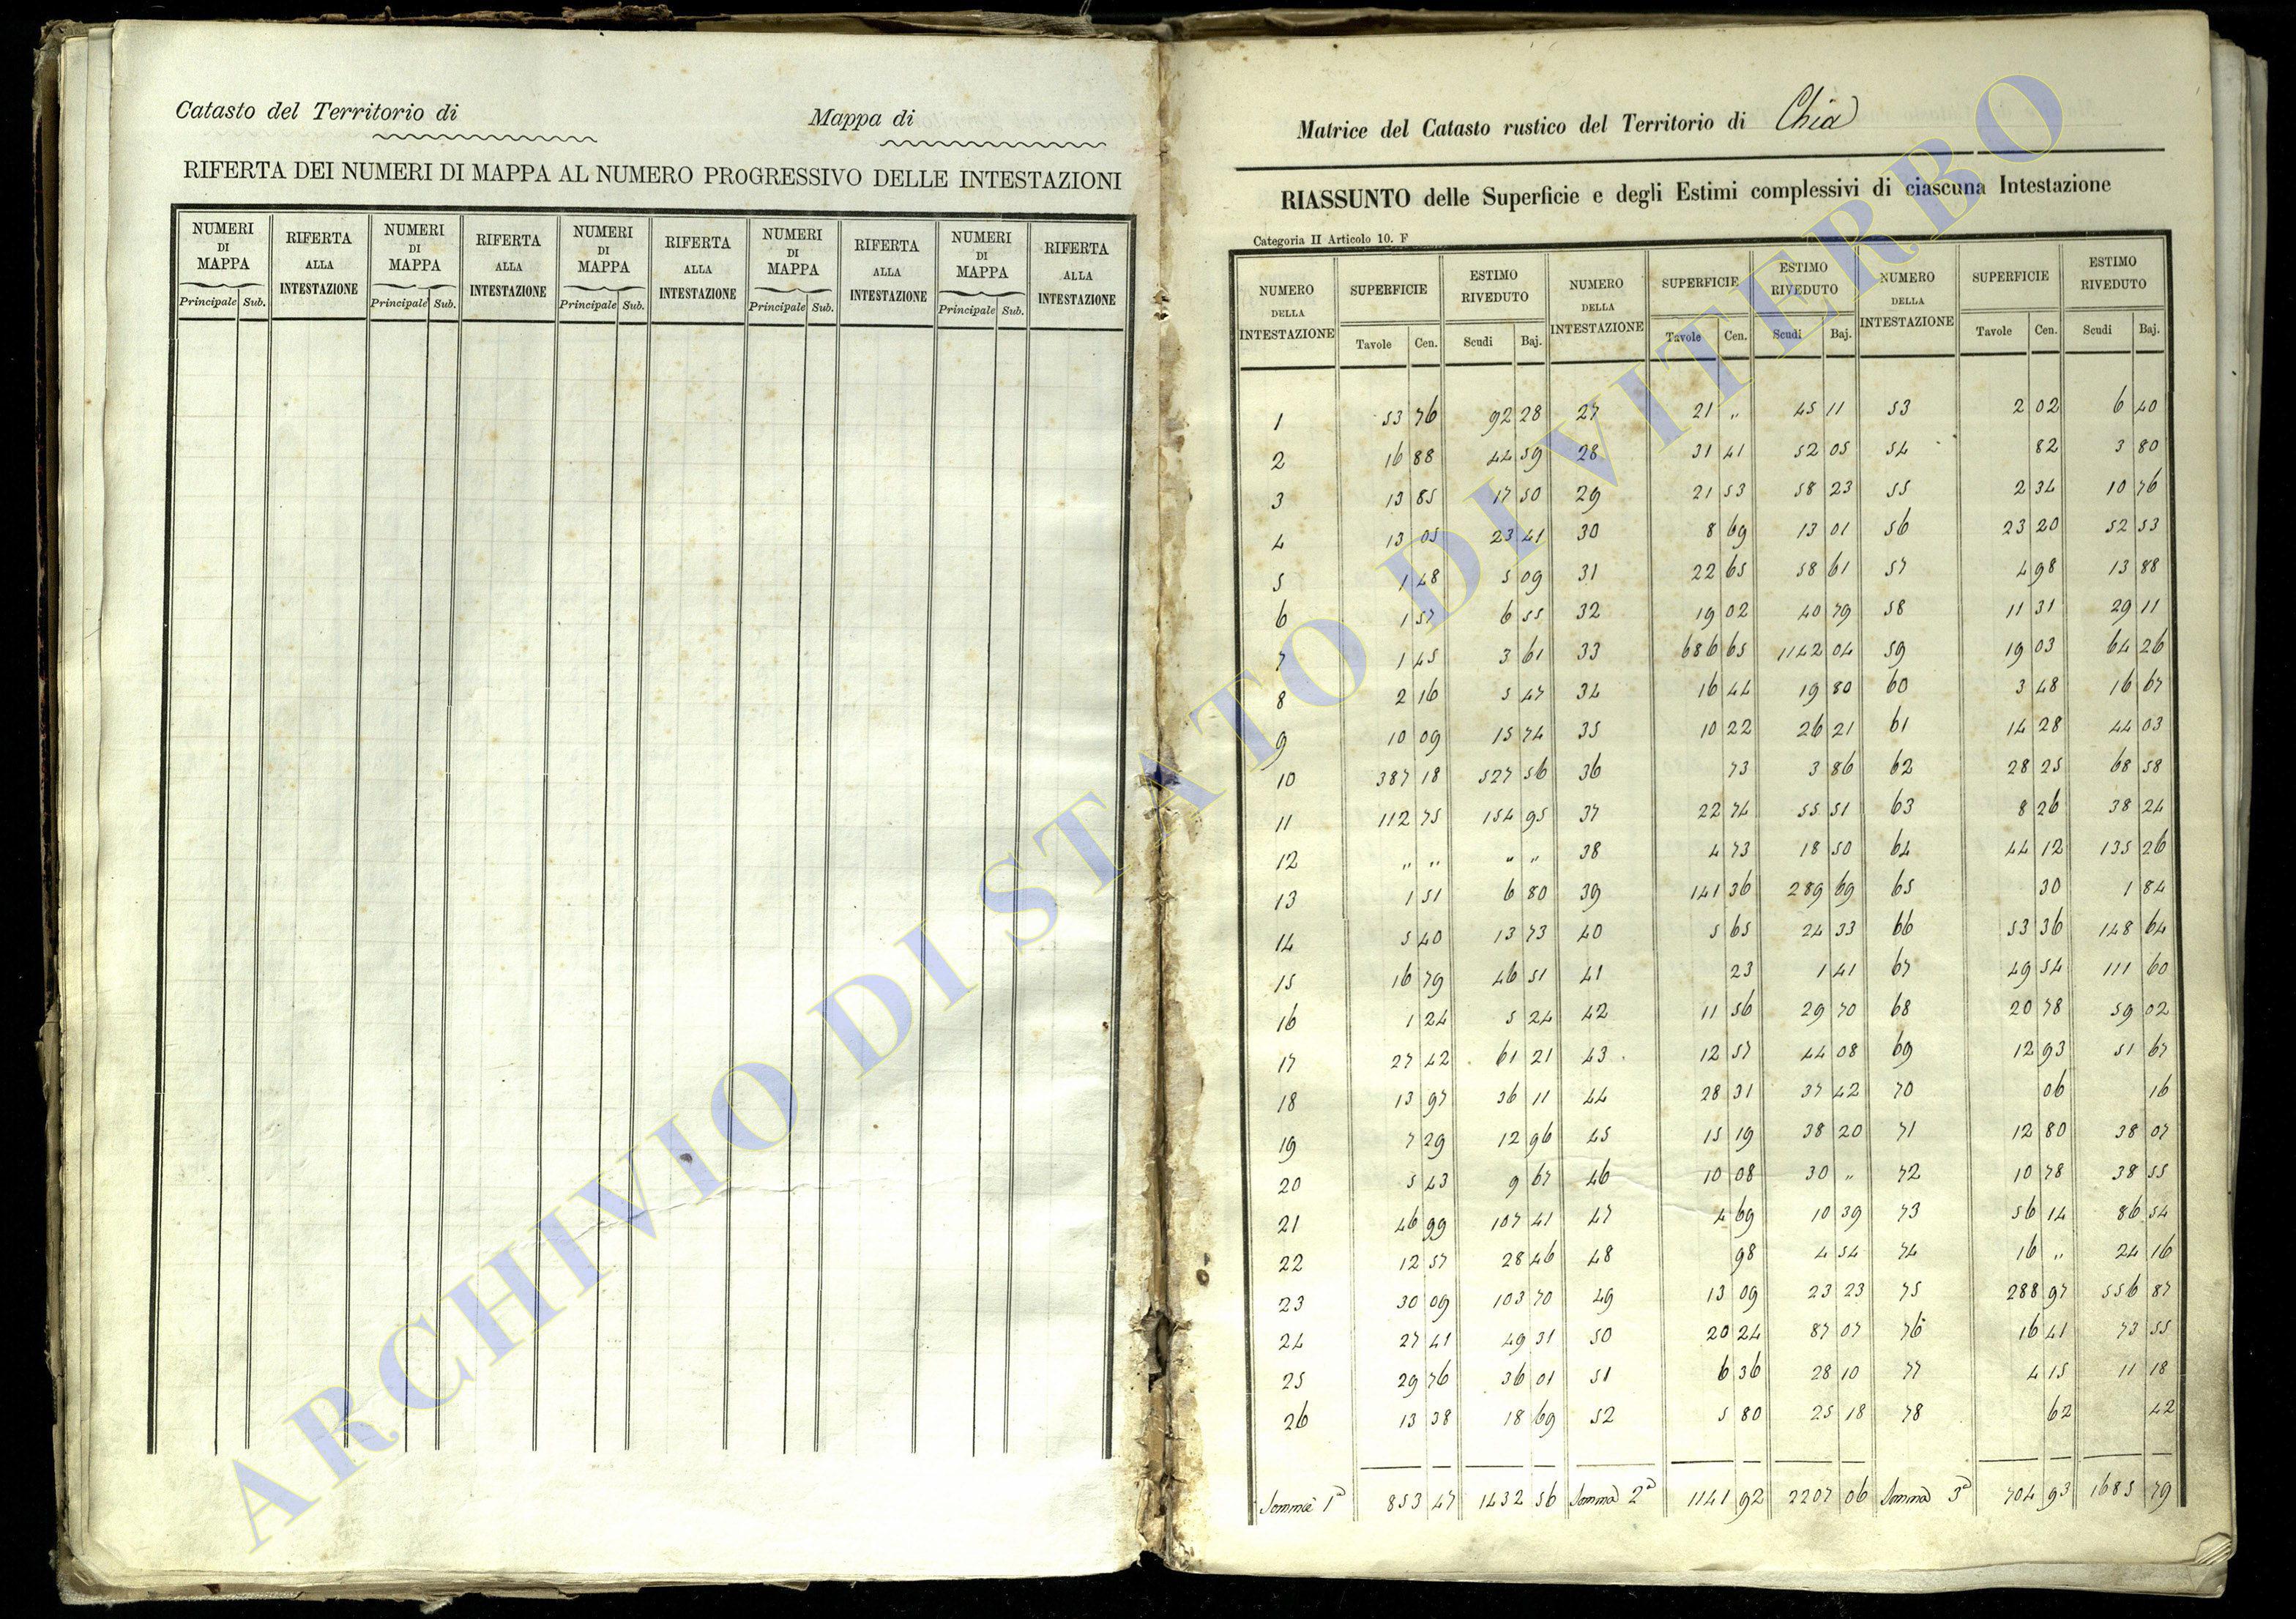 Catasto del Territorio di Mappa di
RIFERTA DEI NUMERI DI MAPPA AL NUMERO PROGRESSIVO DELLE INTESTAZIONI
NUMERI DI MAPPA RIFERTA ALLA INTESTAZIONE NUMERI DI MAPPA RIFERTA ALLA INTESTAZIONE NUMERI DI MAPPA RIFERTA ALLA INTESTAZIONE NUMERI DI MAPPA RIFERTA ALLA INTESTAZIONE NUMERI DI MAPPA RIFERTA ALLA INTESTAZIONE
Principale Sub. Principale Sub. Principale Sub. Principale Sub. Principale Sub.
Matrice del Catasto rustico del Territorio di Chia
RIASSUNTO delle Superficie e degli Estimi complessivi di ciascuna Intestazione
Categoria II Articolo 10. F
NUMERO DELLA INTESTAZIONE SUPERFICIE ESTIMO RIVEDUTO NUMERO DELLA INTESTAZIONE SUPERFICIE ESTIMO RIVEDUTO NUMERO DELLA INTESTAZIONE SUPERFICIE ESTIMO RIVEDUTO
Tavole Cen. Scudi Baj. Tavole Cen. Scudi Baj. Tavole Cen. Scudi Baj.
1 53 76 92 28 27 21 „ 45 11 53 2 02 6 40
2 16 88 44 59 28 31 41 52 05 54 82 3 80
3 13 85 17 50 29 21 53 58 23 55 2 34 10 76
4 13 05 23 41 30 8 69 13 01 56 23 20 52 53
5 1 48 5 09 31 22 65 58 61 57 4 98 13 88
6 1 57 6 55 32 19 02 40 79 58 11 31 29 11
7 1 45 3 61 33 686 65 1142 04 59 19 03 64 26
8 2 16 5 47 34 16 44 19 80 60 3 48 16 67
9 10 09 15 74 35 10 22 26 21 61 14 28 44 03
10 387 18 527 56 36 73 3 86 62 28 25 68 58
11 112 75 154 95 37 22 74 55 51 63 8 26 38 24
12 „ „ „ „ 38 4 73 18 50 64 44 12 135 26
13 1 51 6 80 39 141 36 289 69 65 30 1 84
14 5 40 13 73 40 5 65 24 33 66 53 36 148 64
15 16 79 46 51 41 23 1 41 67 49 54 111 60
16 1 24 5 24 42 11 56 29 70 68 20 78 59 02
17 27 42 61 21 43 12 57 44 08 69 12 93 51 67
18 13 97 36 11 44 28 31 37 42 70 06 16
19 7 29 12 96 45 15 19 38 20 71 12 80 38 07
20 5 43 9 67 46 10 08 30 „ 72 10 78 38 55
21 46 99 107 41 47 4 69 10 39 73 56 14 86 54
22 12 57 28 46 48 98 4 54 74 16 „ 24 16
23 30 09 103 70 49 13 09 23 23 75 288 97 556 87
24 27 41 49 31 50 20 24 87 07 76 16 41 73 55
25 29 76 36 01 51 6 36 28 10 77 4 15 11 18
26 13 38 18 69 52 5 80 25 18 78 62 42
Somma 1ª 853 47 1432 56 Somma 2ª 1141 92 2207 06 Somma 3ª 704 93 1685 79
ARCHIVIO DI STATO DI VITERBO